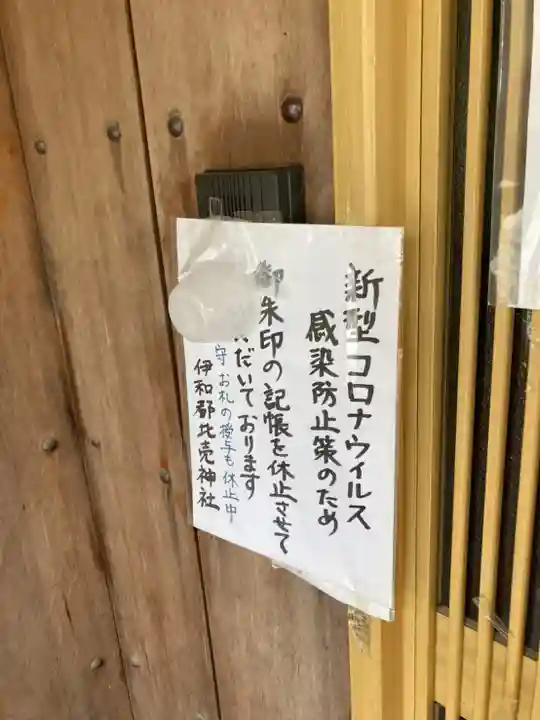 新型コロナウィルス
感染防止策のため
御朱印の記帳を休止させて
ただいております
守 お札の授与も休止中
伊和都比売神社